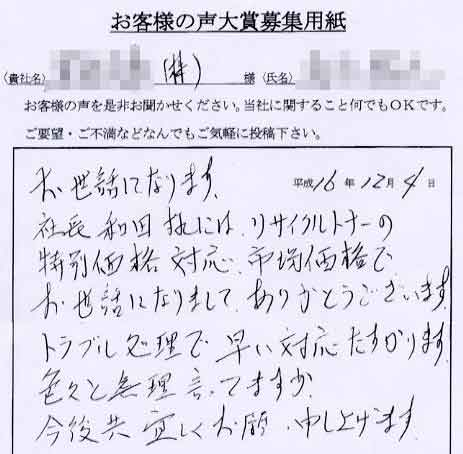 お客様の声大賞募集用紙
(貴社名) (株) 様 (氏名)
お客様の声を是非お聞かせください。当社に関すること何でもOKです。
ご要望・ご不満などなんでもご気軽に投稿下さい。
お世話になります。 平成16年12月4日
社長 和田様には、リサイクルトナーの
特別価格対応、市場価格で
お世話になりまして、ありがとうございます。
トラブル処理で早い対応たすかります。
色々と無理言ってますが、
今後共宜しくお願い申し上げます。